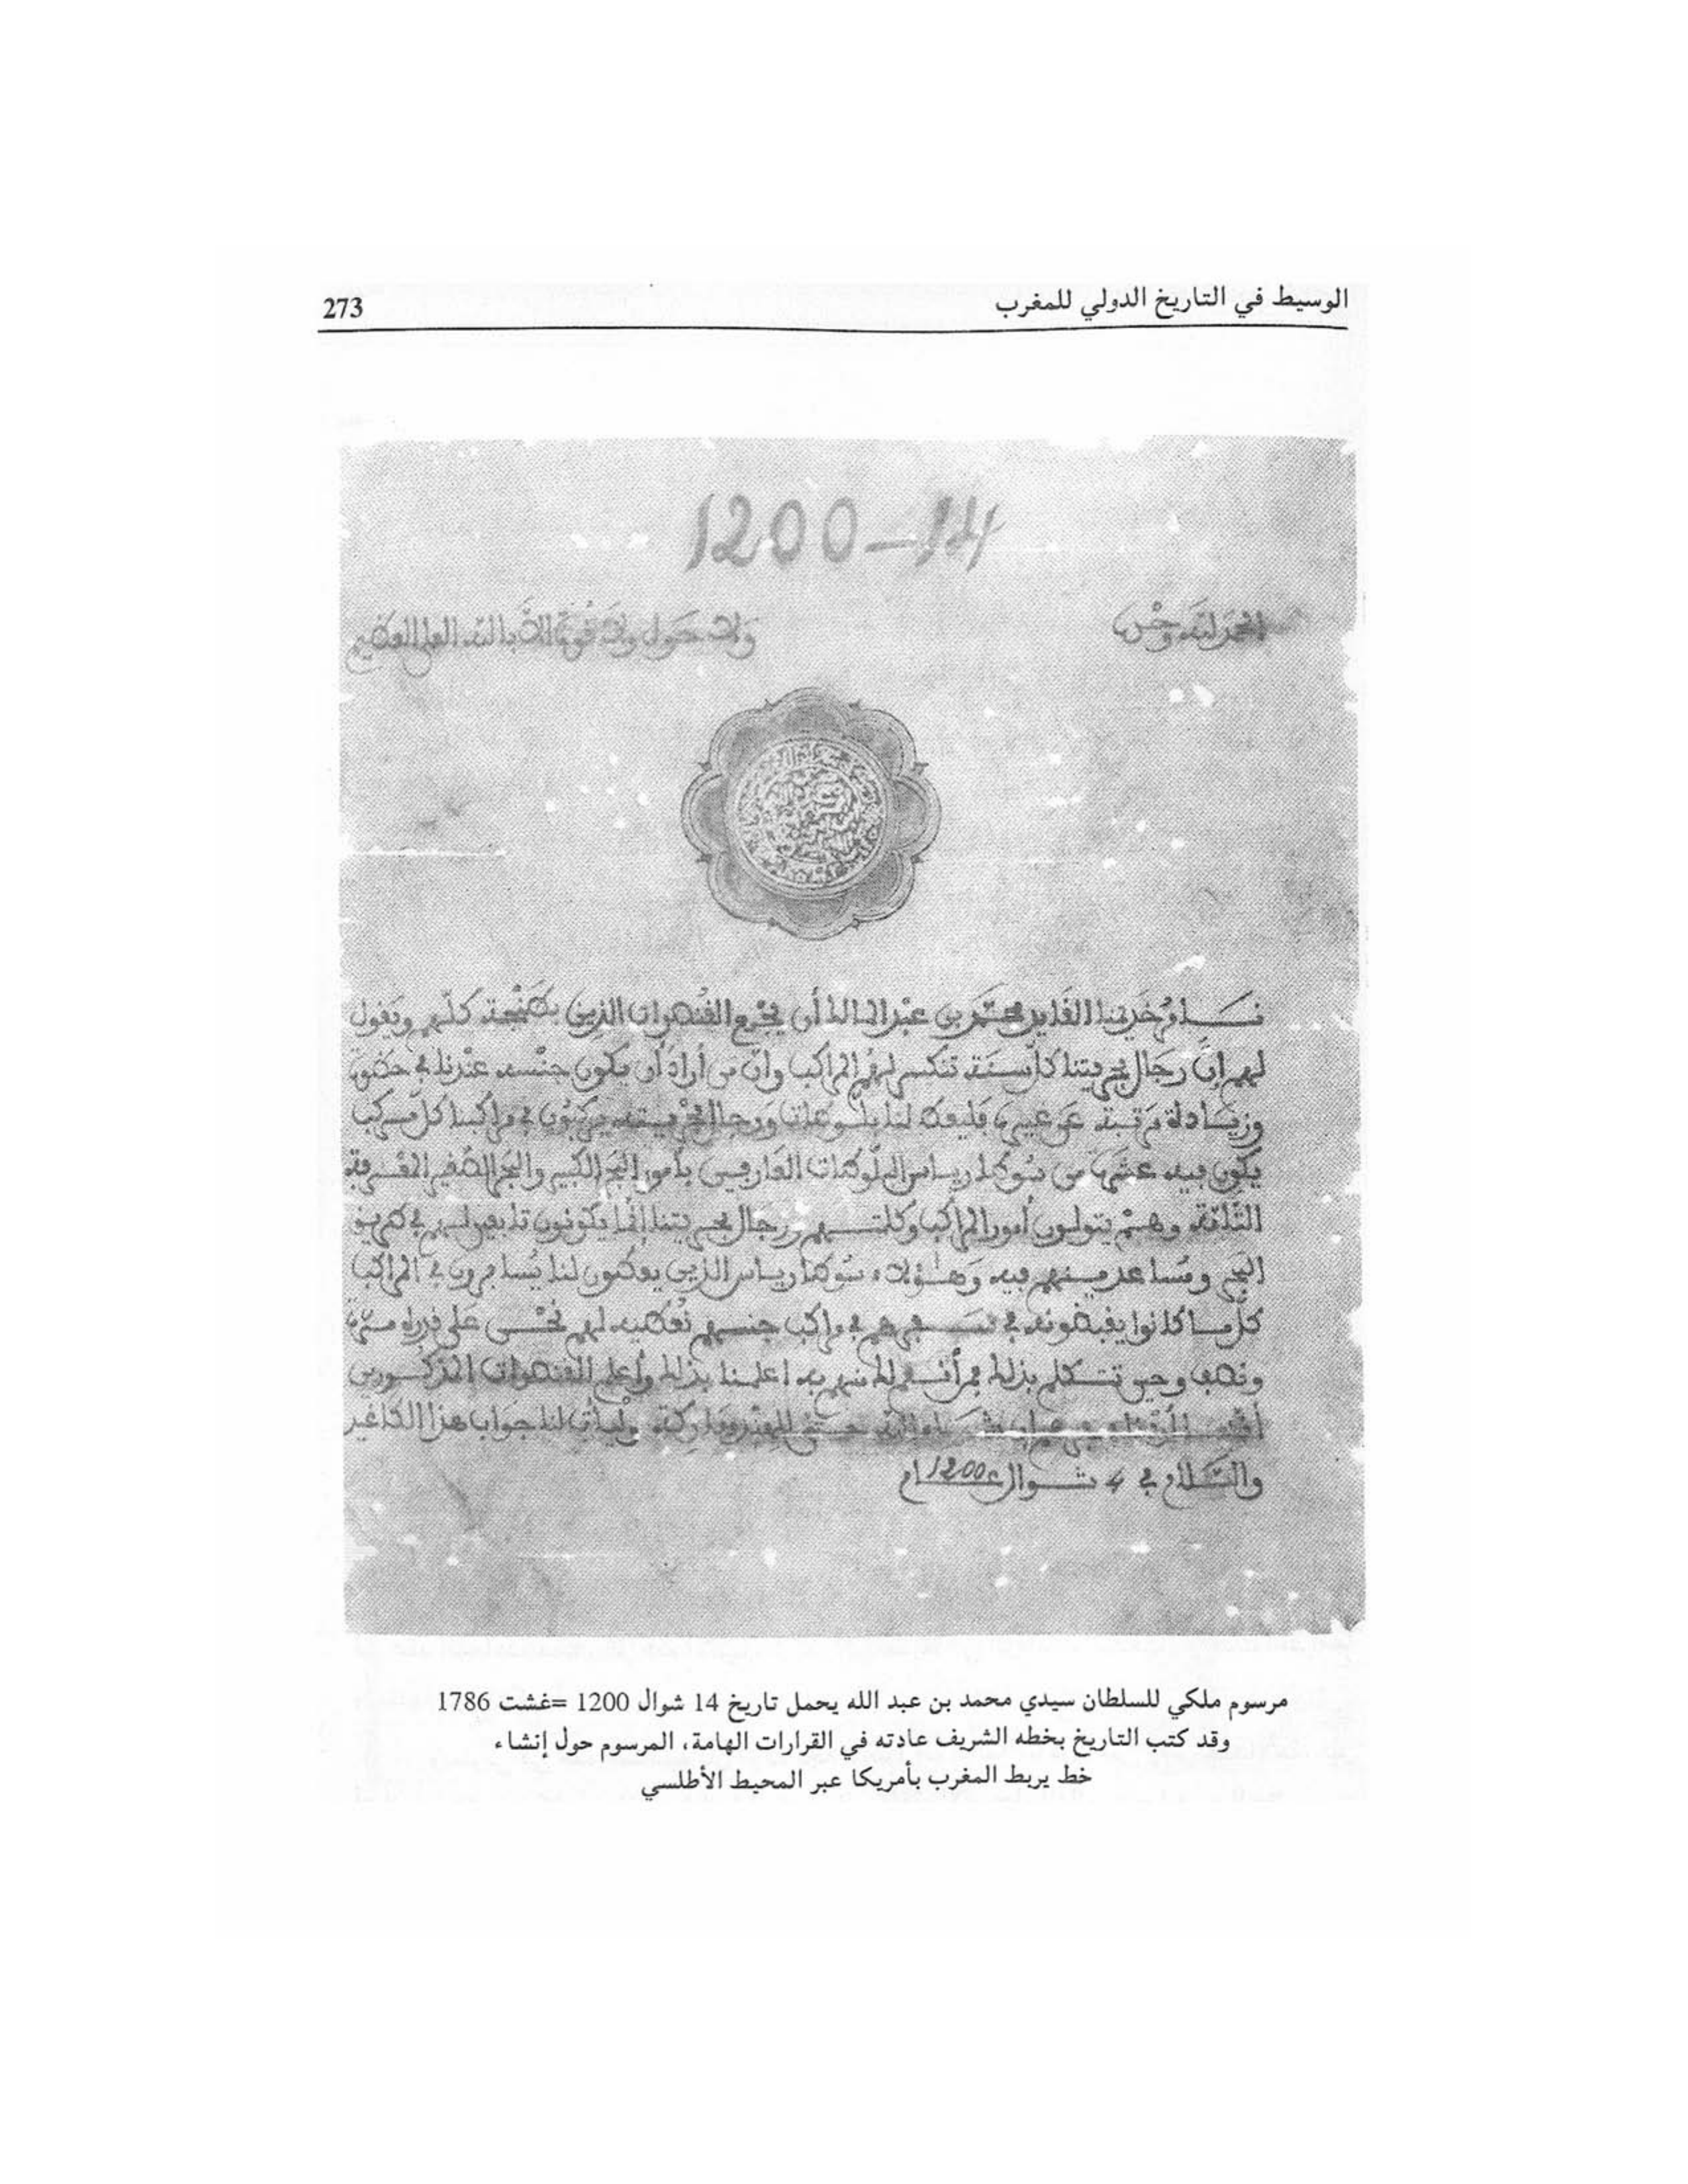 الوسيط في التاريخ الدولي للمغرب 273
1200-14
الحمد لله وحده ولا حول ولا قوة الا بالله العلي العظيم
نامر خديمنا القايد محمد بن عبد المالك أن يجمع القنصوات الذين بطنجة كلهم ويقول
لهم إن رجال بحريتنا كل سنة تنكسر لهم المراكب وأن من أراد أن يكون جنسه عندنا في حضوة
وزيادة مرتبة عن غيره فليعط لنا ورجال يركبون في مراكبنا كل مركب
يكون فيه عشرة من سوطا رياس العارفين بأمور البحر الكبير والبحر الصغير
وهم يتولون أمور المراكب ورجال بحريتنا إنما يكونون تابعين لهم في
البحر ومساعدينهم فيه وهؤلاء سوطا رياس الذين يعطون لنا يسافرون في المراكب
كل ما كانوا يقبضونه في سفرهم في مراكب جنسهم نعطيه لهم نحن على قدره مرة
ونصف وحين تتكلم بذلك اعلمنا بذلك وأعلم القنصوات المذكورين
ان شاء الله حتى وليأت لنا جواب هذا الكاغيد
والسلام في 4 شوال عام 1200
مرسوم ملكي للسلطان سيدي محمد بن عبد الله يحمل تاريخ 14 شوال 1200 =غشت 1786
وقد كتب التاريخ بخطه الشريف عادته في القرارات الهامة، المرسوم حول إنشاء
خط يربط المغرب بأمريكا عبر المحيط الأطلسي